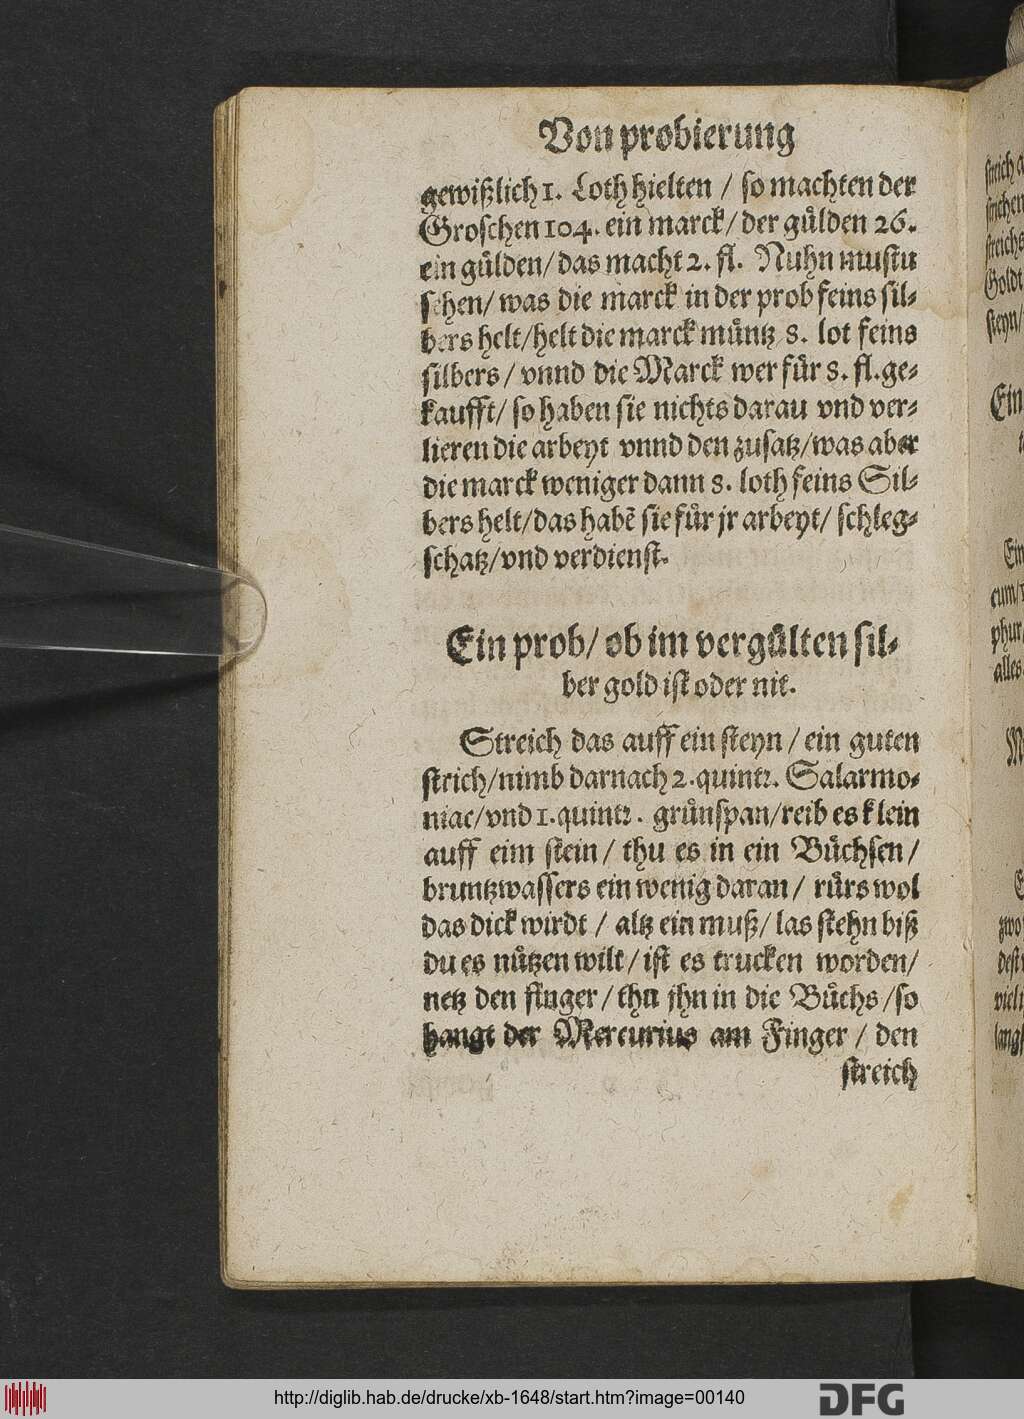 Von probierung
gewißlich 1. Loth hielten / so machten der
Groschen 104. ein marck / der gülden 26.
ein gülden / das macht 2. fl. Nuhn mustu
sehen / was die marck in der prob feins sil⸗
bers helt / helt die marck müntz 8. lot feins
silbers / vnnd die Marck wer für 8. fl. ge⸗
kaufft / so haben sie nichts darau vnd ver⸗
lieren die arbeyt vnnd den zusatz / was aber
die marck weniger dann 8. loth feins Sil⸗
bers helt / das habẽ sie für jr arbeyt / schleg⸗
schatz / vnd verdienst.
Ein prob / ob im vergülten sil⸗
ber gold ist oder nit.
Streich das auff ein steyn / ein guten
strich / nimb darnach 2. quintz. Salarmo⸗
niac / vnd 1. quintz. grünspan / reib es klein
auff eim stein / thu es in ein Büchsen /
bruntzwassers ein wenig daran / rürs wol
das dick wirdt / altz ein muß / las stehn biß
du es nützen wilt / ist es trucken worden /
netz den finger / thu jhn in die Büchs / so
hangt der Mercurius am Finger / den
streich
http://diglib.hab.de/drucke/xb-1648/start.htm?image=00140
DFG